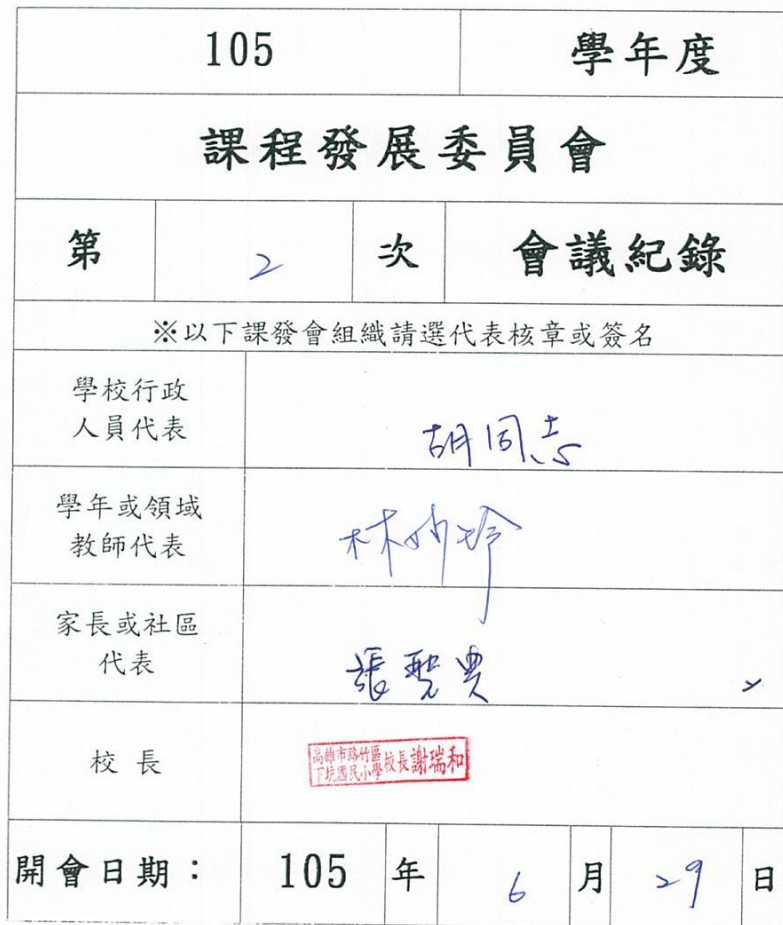 105 學年度
課程發展委員會
第 2 次 會議紀錄
※以下課發會組織請選代表核章或簽名
學校行政
人員代表
胡同志
學年或領域
教師代表
林
家長或社區
代表
張
校長
高雄市路竹區
下坑國民小學
校長謝瑞和
開會日期： 105 年 6 月 29 日